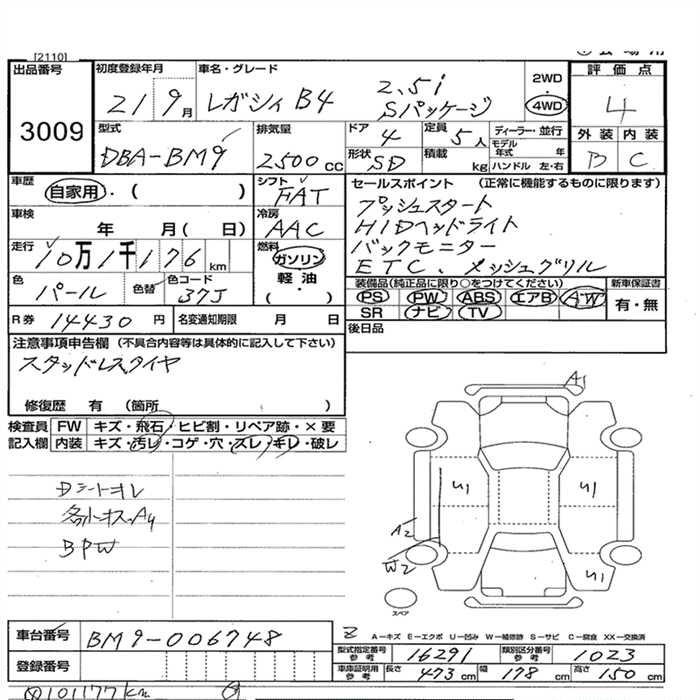 [2110]
出品番号
3009
初度登録年月
21 9月
車名・グレード
レガシィ B4
2.5i
Sパッケージ
2WD
4WD
評価点
4
外装 内装
B C
型式
DBA-BM9
排気量
2500cc
ドア 4
形状 SD
定員 5人
積載 kg
ディーラー・並行
モデル年式 年
ハンドル 左・右
車歴
自家用・( )
シフト
FAT
車検
年 月( 日)
冷房
AAC
走行
10万1千176km
燃料
ガソリン
軽油
( ・ )
色
パール
色替
色コード
37J
R券 14430円
名変通知期限 月 日
セールスポイント (正常に機能するものに限ります)
プッシュスタート
HIDヘッドライト
バックモニター
ETC、メッシュグリル
装備品(純正品に限り○をつけてください)
新車保証書
PS PW ABS エアB AW
有・無
SR ナビ TV
後日品
注意事項申告欄 (不具合内容等は具体的に記入して下さい)
スタッドレスタイヤ
修復歴 有 (箇所 )
検査員 FW キズ・飛石・ヒビ割・リペア跡・×要
記入欄 内装 キズ・汚レ・コゲ・穴・スレ・キレ・破レ
A1
U1 U1
A2
W2
U1
スペア
A-キズ E-エクボ U-凹み W-補修跡 S-サビ C-腐食 XX-交換済
車台番号 BM9-006748
登録番号
型式指定番号 参考 16291
類別区分番号 参考 1023
車庫証明用 参考 長さ 473cm 幅 178cm 高さ 150cm
101177km